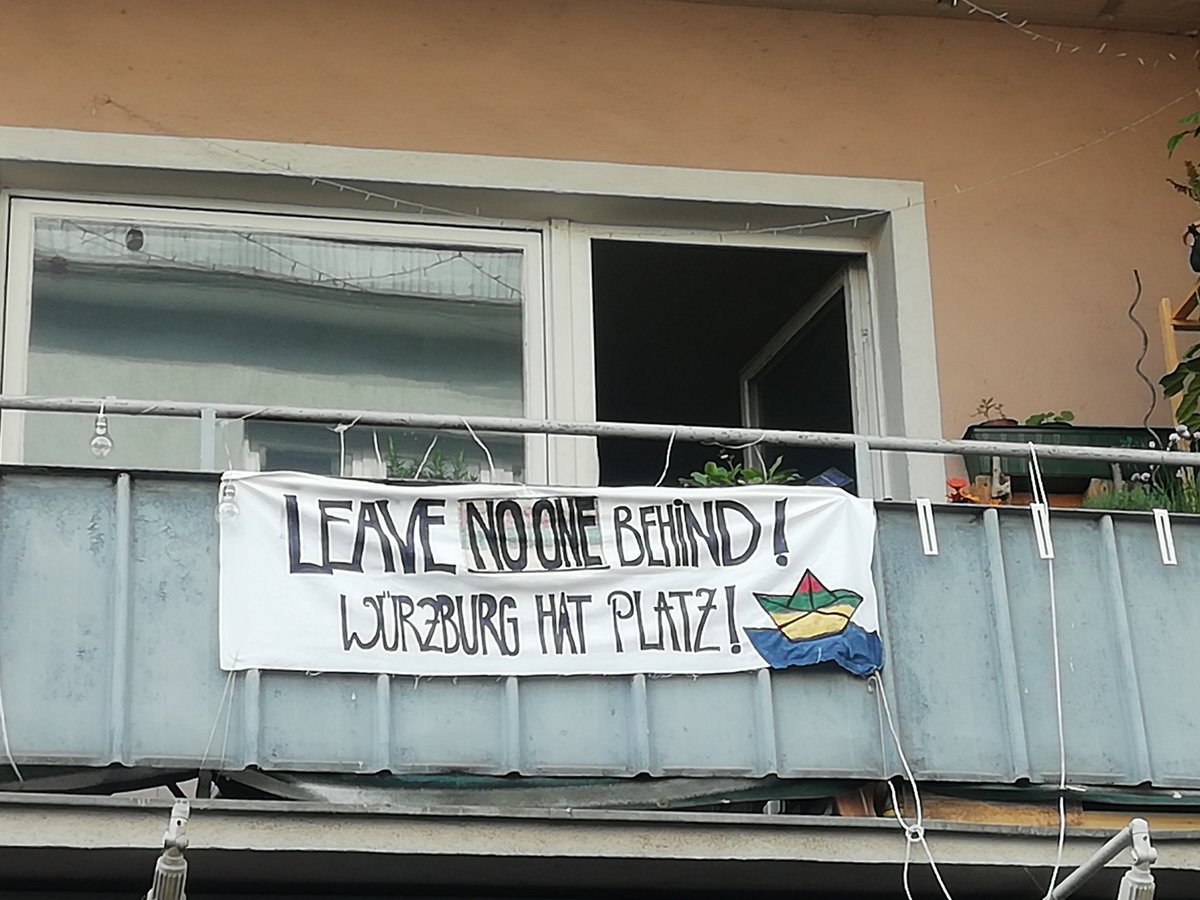 LEAVE NO ONE BEHIND!
WÜRZBURG HAT PLATZ!